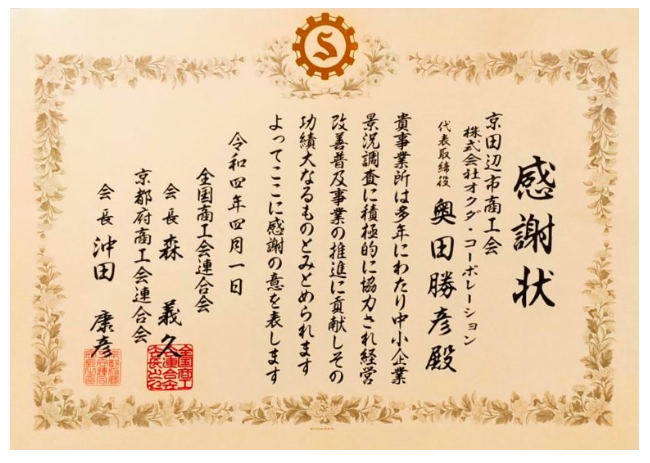 S
感謝状
京田辺市商工会
株式会社オクダ・コーポレーション
代表取締役 奥田勝彦殿
貴事業所は多年にわたり中小企業
景況調査に積極的に協力され経営
改善普及事業の推進に貢献しその
功績大なるものとみとめられます
よってここに感謝の意を表します
令和四年四月一日
全国商工会連合会
会長 森 義久
京都府商工会連合会
会長 沖田 康彦